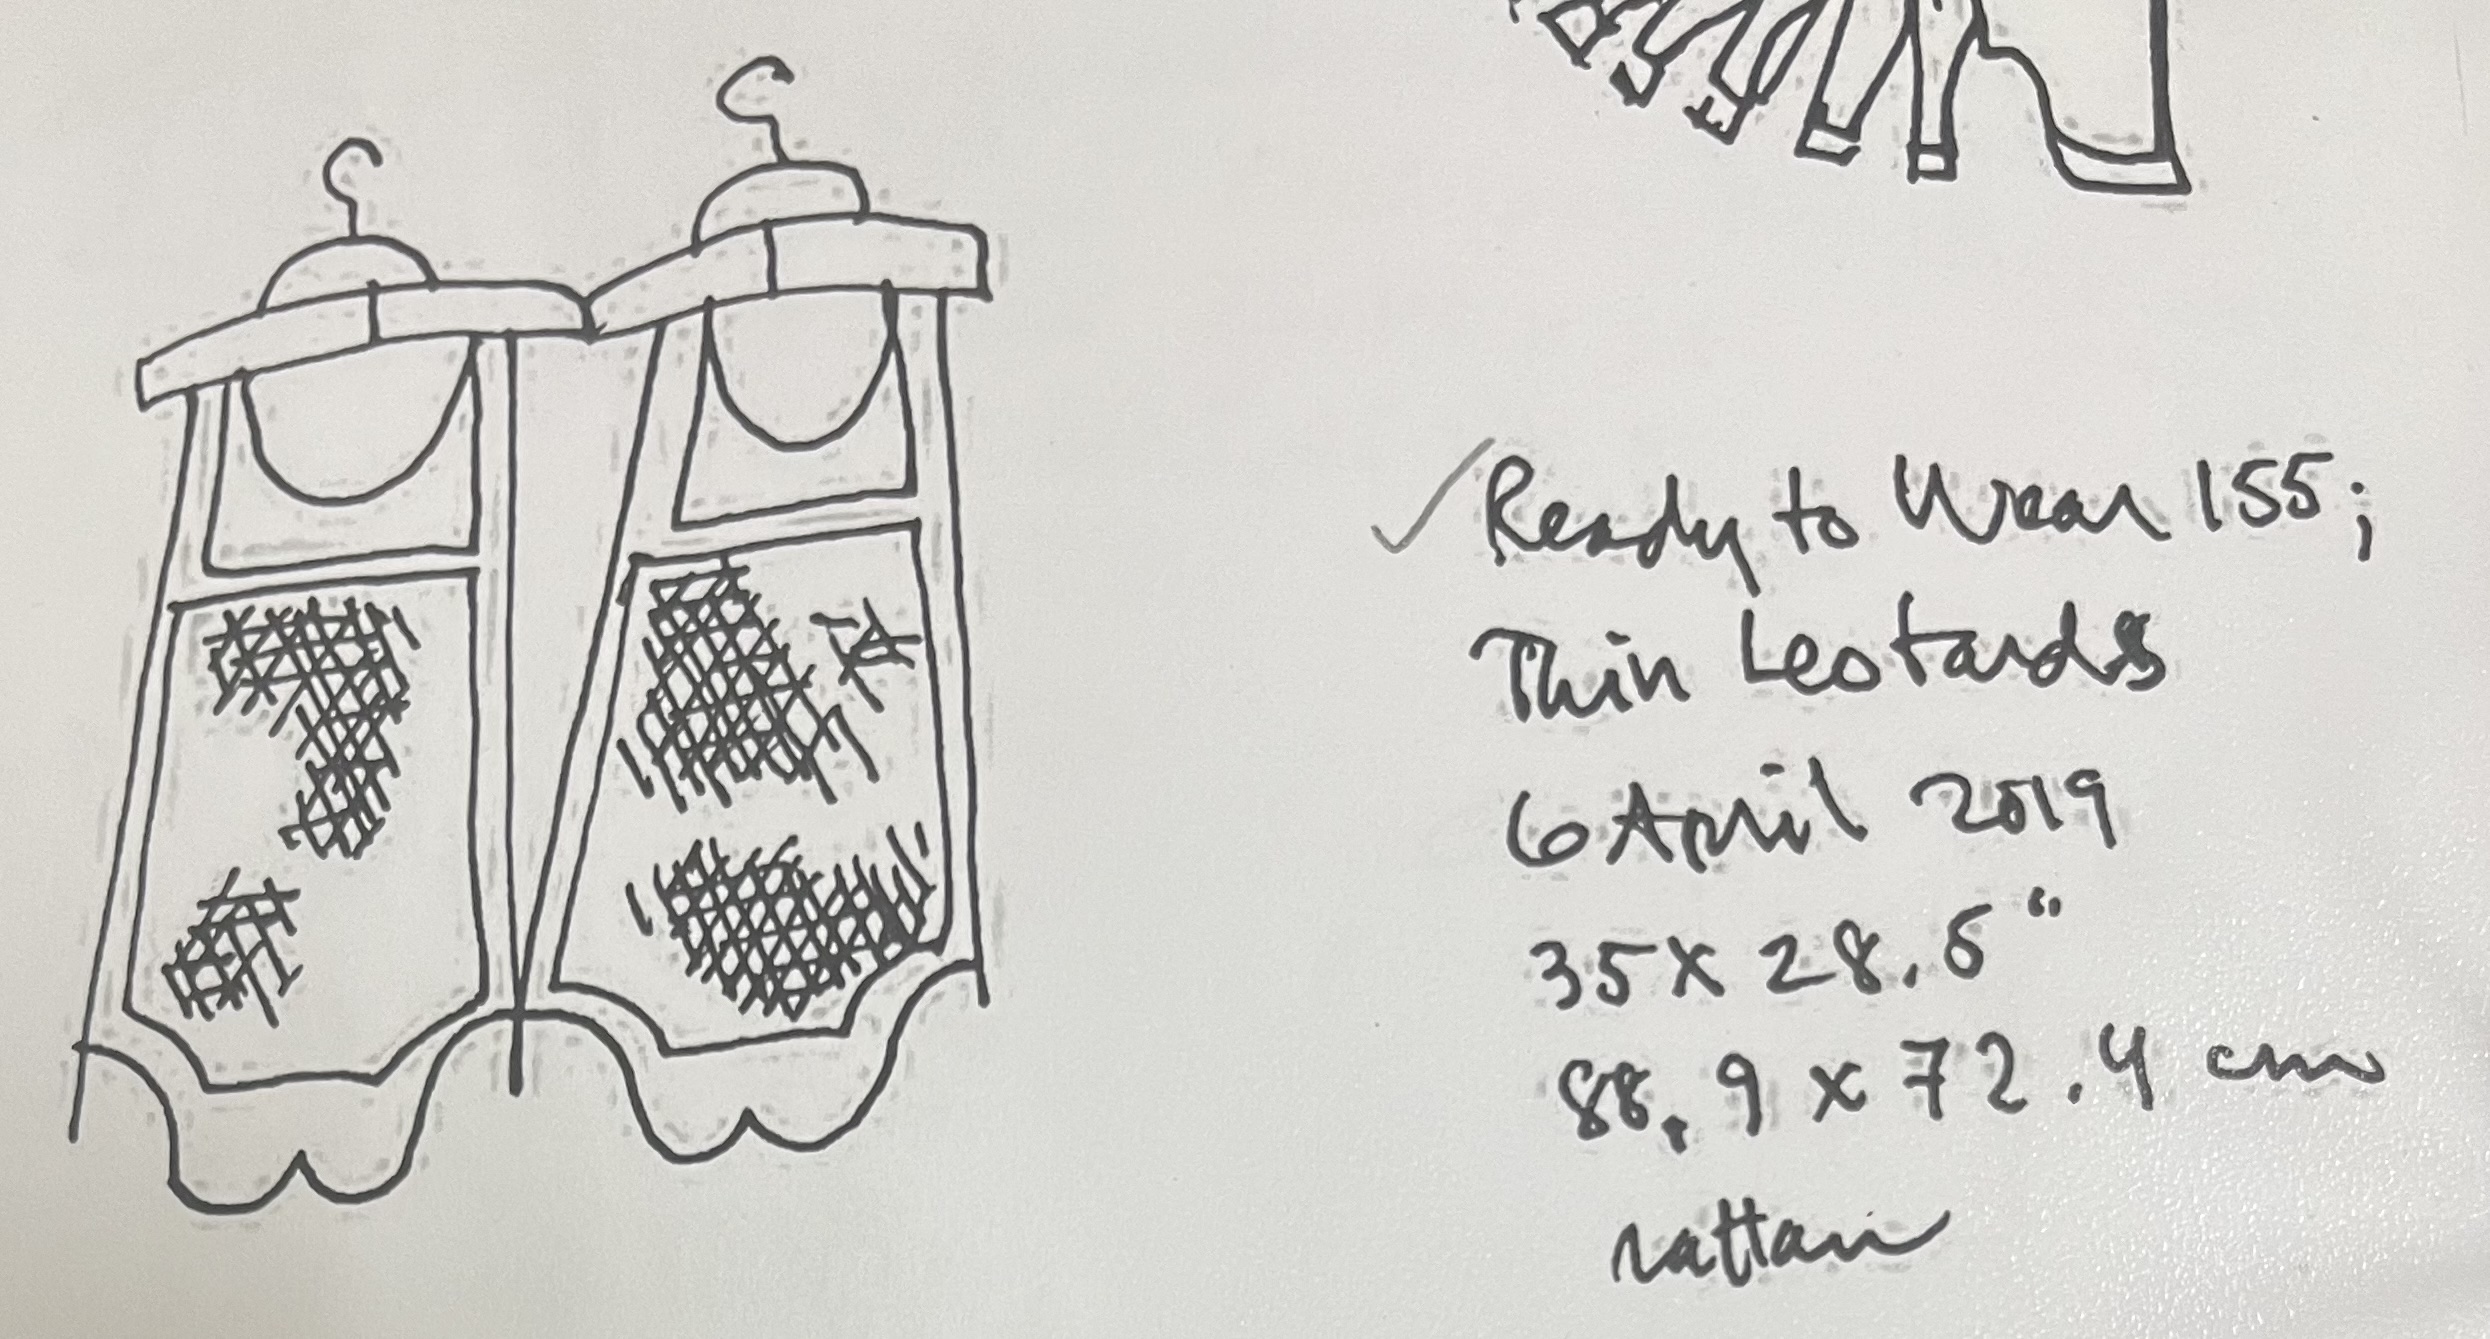 ✓ Ready to Wear 155;
Thin Leotards
6 April 2019
35 x 28.5"
88.9 x 72.4 cm
rattan